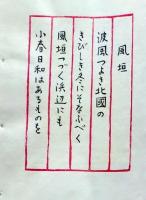 風垣
波風つよき北國の
きびしき冬にそなふべく
風垣つづく浜辺にも
小春日和はあるものを